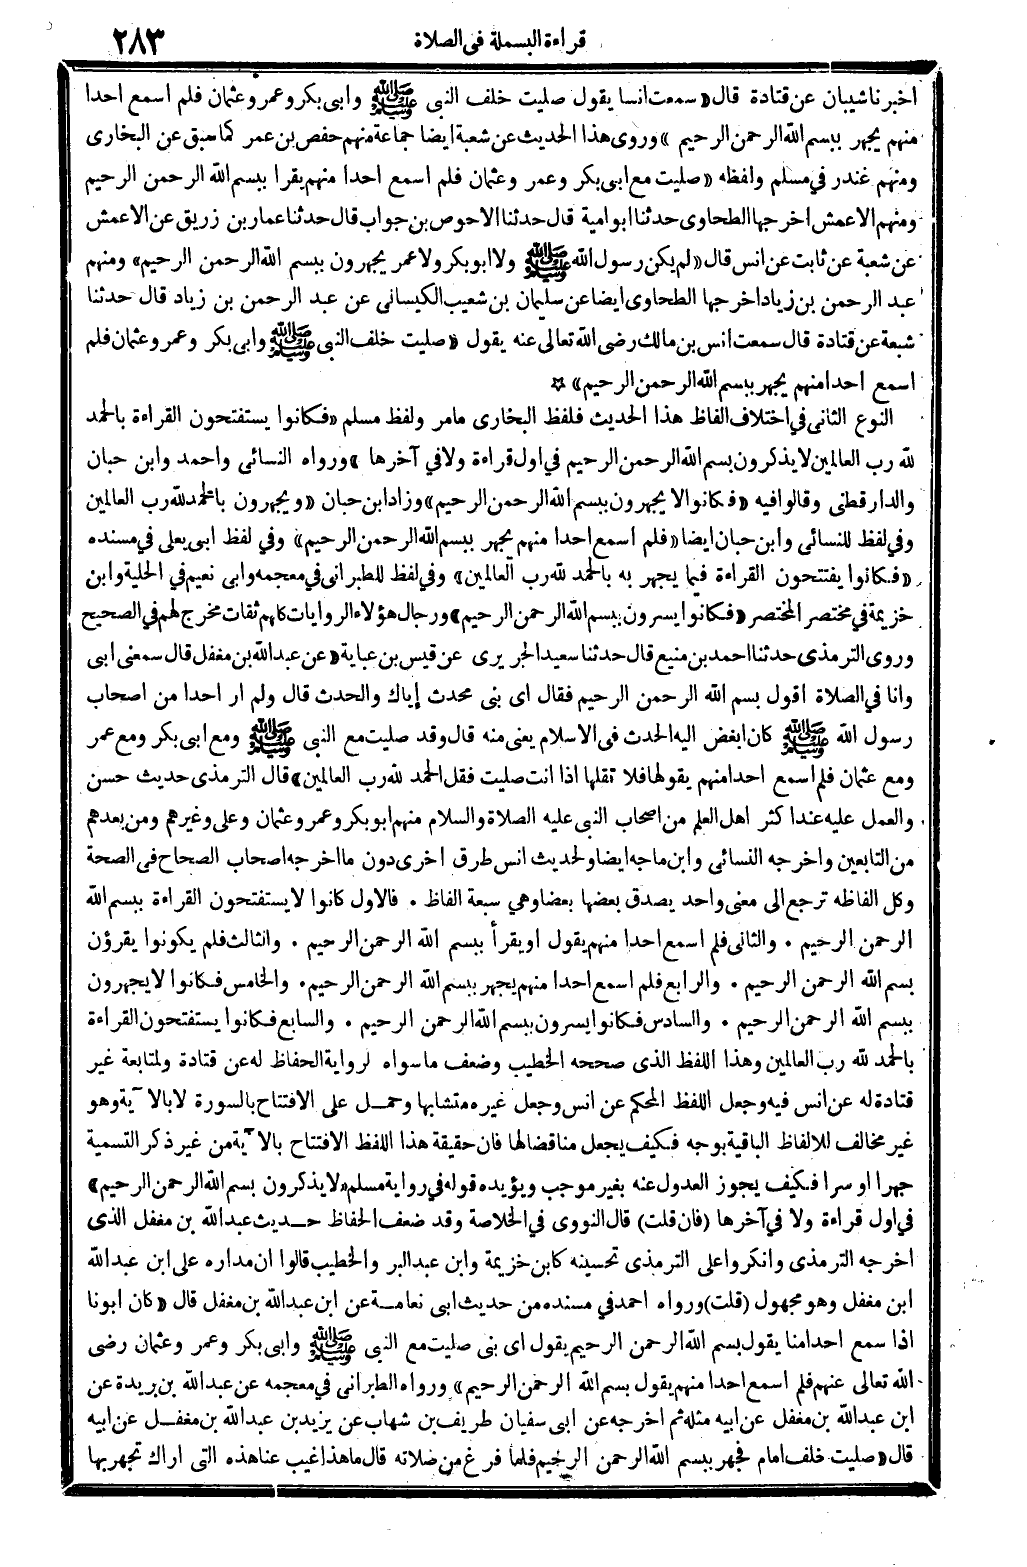 قراءة البسملة فى الصلاة ٢٨٣
اخبرنا شيبان عن قتادة قال «سمعت انسا يقول صليت خلف النبى ﷺ وابى بكر وعمر وعثمان فلم اسمع احدا
منهم يجهر ببسم الله الرحمن الرحيم» وروى هذا الحديث عن شعبة ايضا جماعة منهم حفص بن عمر كما سبق عن البخارى
ومنهم غندر في مسلم ولفظه «صليت مع ابى بكر وعمر وعثمان فلم اسمع احدا منهم يقرا ببسم الله الرحمن الرحيم
ومنهم الاعمش اخرجها الطحاوى حدثنا ابو امية قال حدثنا الاحوص بن جواب قال حدثنا عمار بن زريق عن الاعمش
عن شعبة عن ثابت عن انس قال «لم يكن رسول الله ﷺ ولا ابو بكر ولا عمر يجهرون ببسم الله الرحمن الرحيم» ومنهم
عبد الرحمن بن زياد اخرجها الطحاوى ايضا عن سليمان بن شعيب الكيسانى عن عبد الرحمن بن زياد قال حدثنا
شعبة عن قتادة قال سمعت انس بن مالك رضى الله تعالى عنه يقول «صليت خلف النبى ﷺ وابى بكر وعمر وعثمان فلم
اسمع احدا منهم يجهر ببسم الله الرحمن الرحيم» ☆
النوع الثانى في اختلاف الفاظ هذا الحديث فلفظ البخارى مامر ولفظ مسلم «فكانوا يستفتحون القراءة بالحمد
لله رب العالمين لا يذكرون بسم الله الرحمن الرحيم في اول قراءة ولا في آخرها» ورواه النسائى واحمد وابن حبان
والدارقطنى وقالوا فيه «فكانوا لا يجهرون ببسم الله الرحمن الرحيم» وزاد ابن حبان «ويجهرون بالحمد لله رب العالمين
وفي لفظ للنسائى وابن حبان ايضا «فلم اسمع احدا منهم يجهر ببسم الله الرحمن الرحيم» وفي لفظ ابى يعلى في مسنده
«فكانوا يفتتحون القراءة فيما يجهر به بالحمد لله رب العالمين» وفي لفظ للطبرانى في معجمه وابى نعيم في الحلية وابن
خزيمة في مختصر المختصر «فكانوا يسرون ببسم الله الرحمن الرحيم» ورجال هؤلاء الروايات كلهم ثقات مخرج لهم في الصحيح
وروى الترمذى حدثنا احمد بن منيع قال حدثنا سعيد الجريرى عن قيس بن عباية «عن عبد الله بن مغفل قال سمعنى ابى
وانا في الصلاة اقول بسم الله الرحمن الرحيم فقال اى بنى محدث إياك والحدث قال ولم ار احدا من اصحاب
رسول الله ﷺ كان ابغض اليه الحدث فى الاسلام يعنى منه قال وقد صليت مع النبى ﷺ ومع ابى بكر ومع عمر
ومع عثمان فلم اسمع احدا منهم يقولها فلا تقلها اذا انت صليت فقل الحمد لله رب العالمين» قال الترمذى حديث حسن
والعمل عليه عند اكثر اهل العلم من اصحاب النبى عليه الصلاة والسلام منهم ابو بكر وعمر وعثمان وعلى وغيرهم ومن بعدهم
من التابعين واخرجه النسائى وابن ماجه ايضا ولحديث انس طرق اخرى دون ما اخرجه اصحاب الصحاح فى الصحة
وكل الفاظه ترجع الى معنى واحد يصدق بعضها بعضا وهي سبعة الفاظ . فالاول كانوا لا يستفتحون القراءة ببسم الله
الرحمن الرحيم . والثانى فلم اسمع احدا منهم يقول او يقرأ ببسم الله الرحمن الرحيم . والثالث فلم يكونوا يقرؤن
بسم الله الرحمن الرحيم . والرابع فلم اسمع احدا منهم يجهر ببسم الله الرحمن الرحيم . والخامس فكانوا لا يجهرون
ببسم الله الرحمن الرحيم . والسادس فكانوا يسرون ببسم الله الرحمن الرحيم . والسابع فكانوا يستفتحون القراءة
بالحمد لله رب العالمين وهذا اللفظ الذى صححه الخطيب وضعف ماسواه لرواية الحفاظ له عن قتادة ولمتابعة غير
قتادة له عن انس فيه وجعل اللفظ المحكم عن انس وجعل غيره متشابها وحمل على الافتتاح بالسورة لا بالآية وهو
غير مخالف للالفاظ الباقية بوجه فكيف يجعل مناقضا لها فان حقيقة هذا اللفظ الافتتاح بالآية من غير ذكر التسمية
جهرا او سرا فكيف يجوز العدول عنه بغير موجب ويؤيده قوله في رواية مسلم «لا يذكرون بسم الله الرحمن الرحيم»
في اول قراءة ولا في آخرها (فان قلت) قال النووى في الخلاصة وقد ضعف الحفاظ حديث عبد الله بن مغفل الذى
اخرجه الترمذى وانكروا على الترمذى تحسينه كابن خزيمة وابن عبد البر والخطيب قالوا ان مداره على ابن عبد الله
ابن مغفل وهو مجهول (قلت) ورواه احمد في مسنده من حديث ابى نعامة عن ابن عبد الله بن مغفل قال «كان ابونا
اذا سمع احدا منا يقول بسم الله الرحمن الرحيم يقول اى بنى صليت مع النبى ﷺ وابى بكر وعمر وعثمان رضى
الله تعالى عنهم فلم اسمع احدا منهم يقول بسم الله الرحمن الرحيم» ورواه الطبرانى في معجمه عن عبد الله بن بريدة عن
ابن عبد الله بن مغفل عن ابيه مثله ثم اخرجه عن ابى سفيان طريف بن شهاب عن يزيد بن عبد الله بن مغفل عن ابيه
قال «صليت خلف امام فجهر ببسم الله الرحمن الرحيم فلما فرغ من صلاته قال ما هذا غيب عنا هذه التى اراك تجهر بها